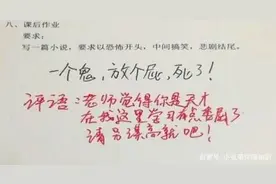 八、课后作业
要求:
写一篇小说，要求以恐怖开头，中间搞笑，悲剧结尾。
一个鬼，放个屁，死了！
评语：老师觉得你是天才
在我这里学习有点委屈了
请另谋高就吧！